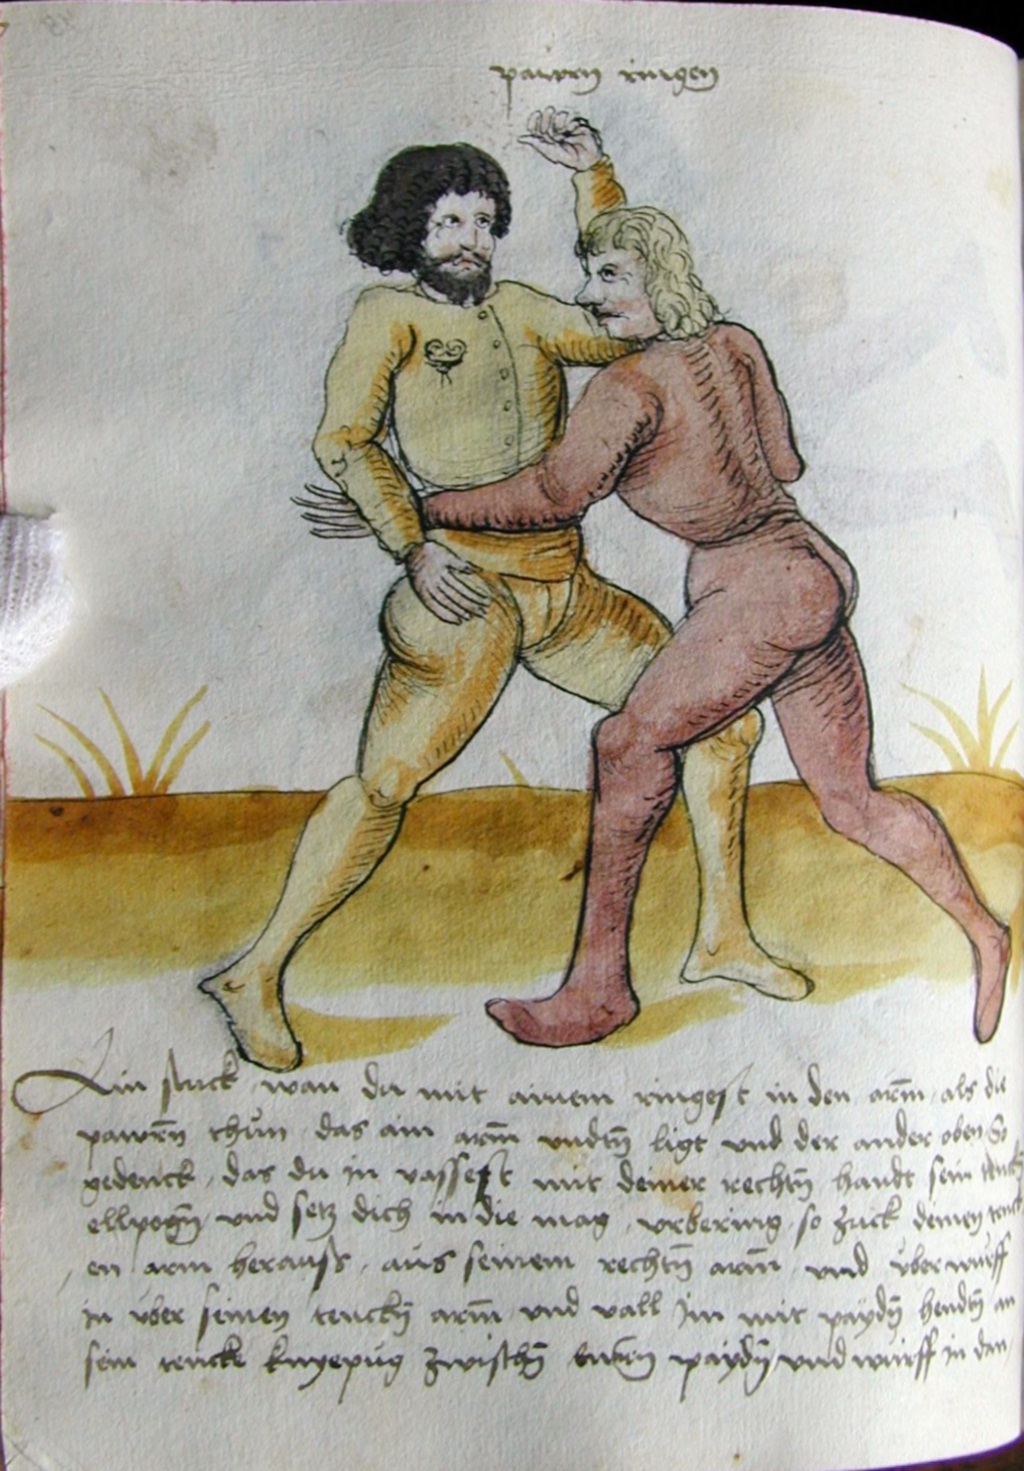 pawrn ringen
Ain stuck wan du mit ainem ringest in den arm̄ als die
pawrn̄ thun das ain arm̄ undtn̄ ligt und der ander oben So
gedenck das du in vassest mit deiner rechtn̄ handt sein tenckn̄
ellpogn̄ und setz dich in die wag urbering so zuck deinen tenck
en arm herauss aus seinem rechtn̄ arm̄ und uberwurff
in uber seinen tenckn̄ arm̄ und vall im mit paydn̄ hendtn̄ an
sein tencke knyepug zwischn̄ ewrn paydn̄ und wurff in dan